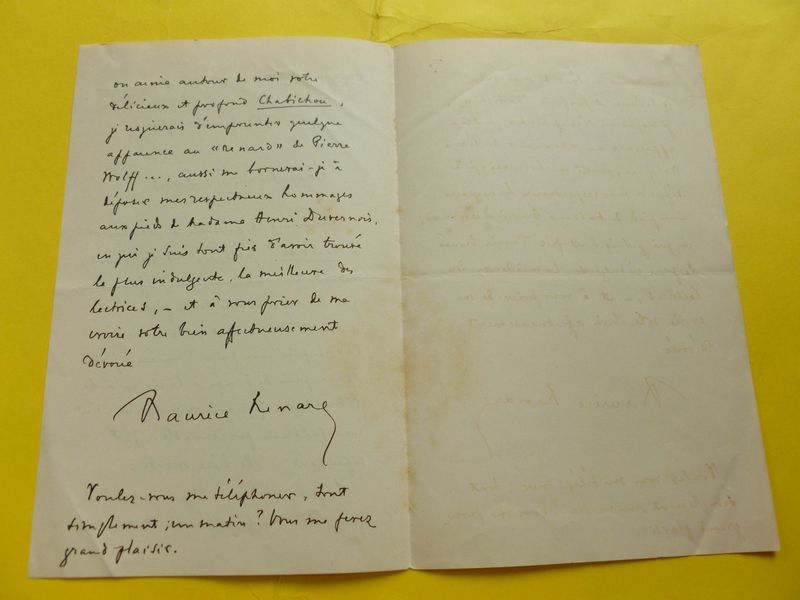 on aime autour de moi votre
délicieux et profond Chabichou,
je risquerais d'emprunter quelque
apparence au "Renard" de Pierre
Wolff..., aussi me bornerai-je à
déposer mes respectueux hommages
aux pieds de Madame Henri Duvernois,
en qui je suis tout fier d'avoir trouvé
la plus indulgente, la meilleure des
lectrices, - et à vous prier de me
croire votre bien affectueusement
dévoué
Maurice Renard
Voulez-vous me téléphoner, tout
simplement, un matin ? Vous me ferez
grand plaisir.